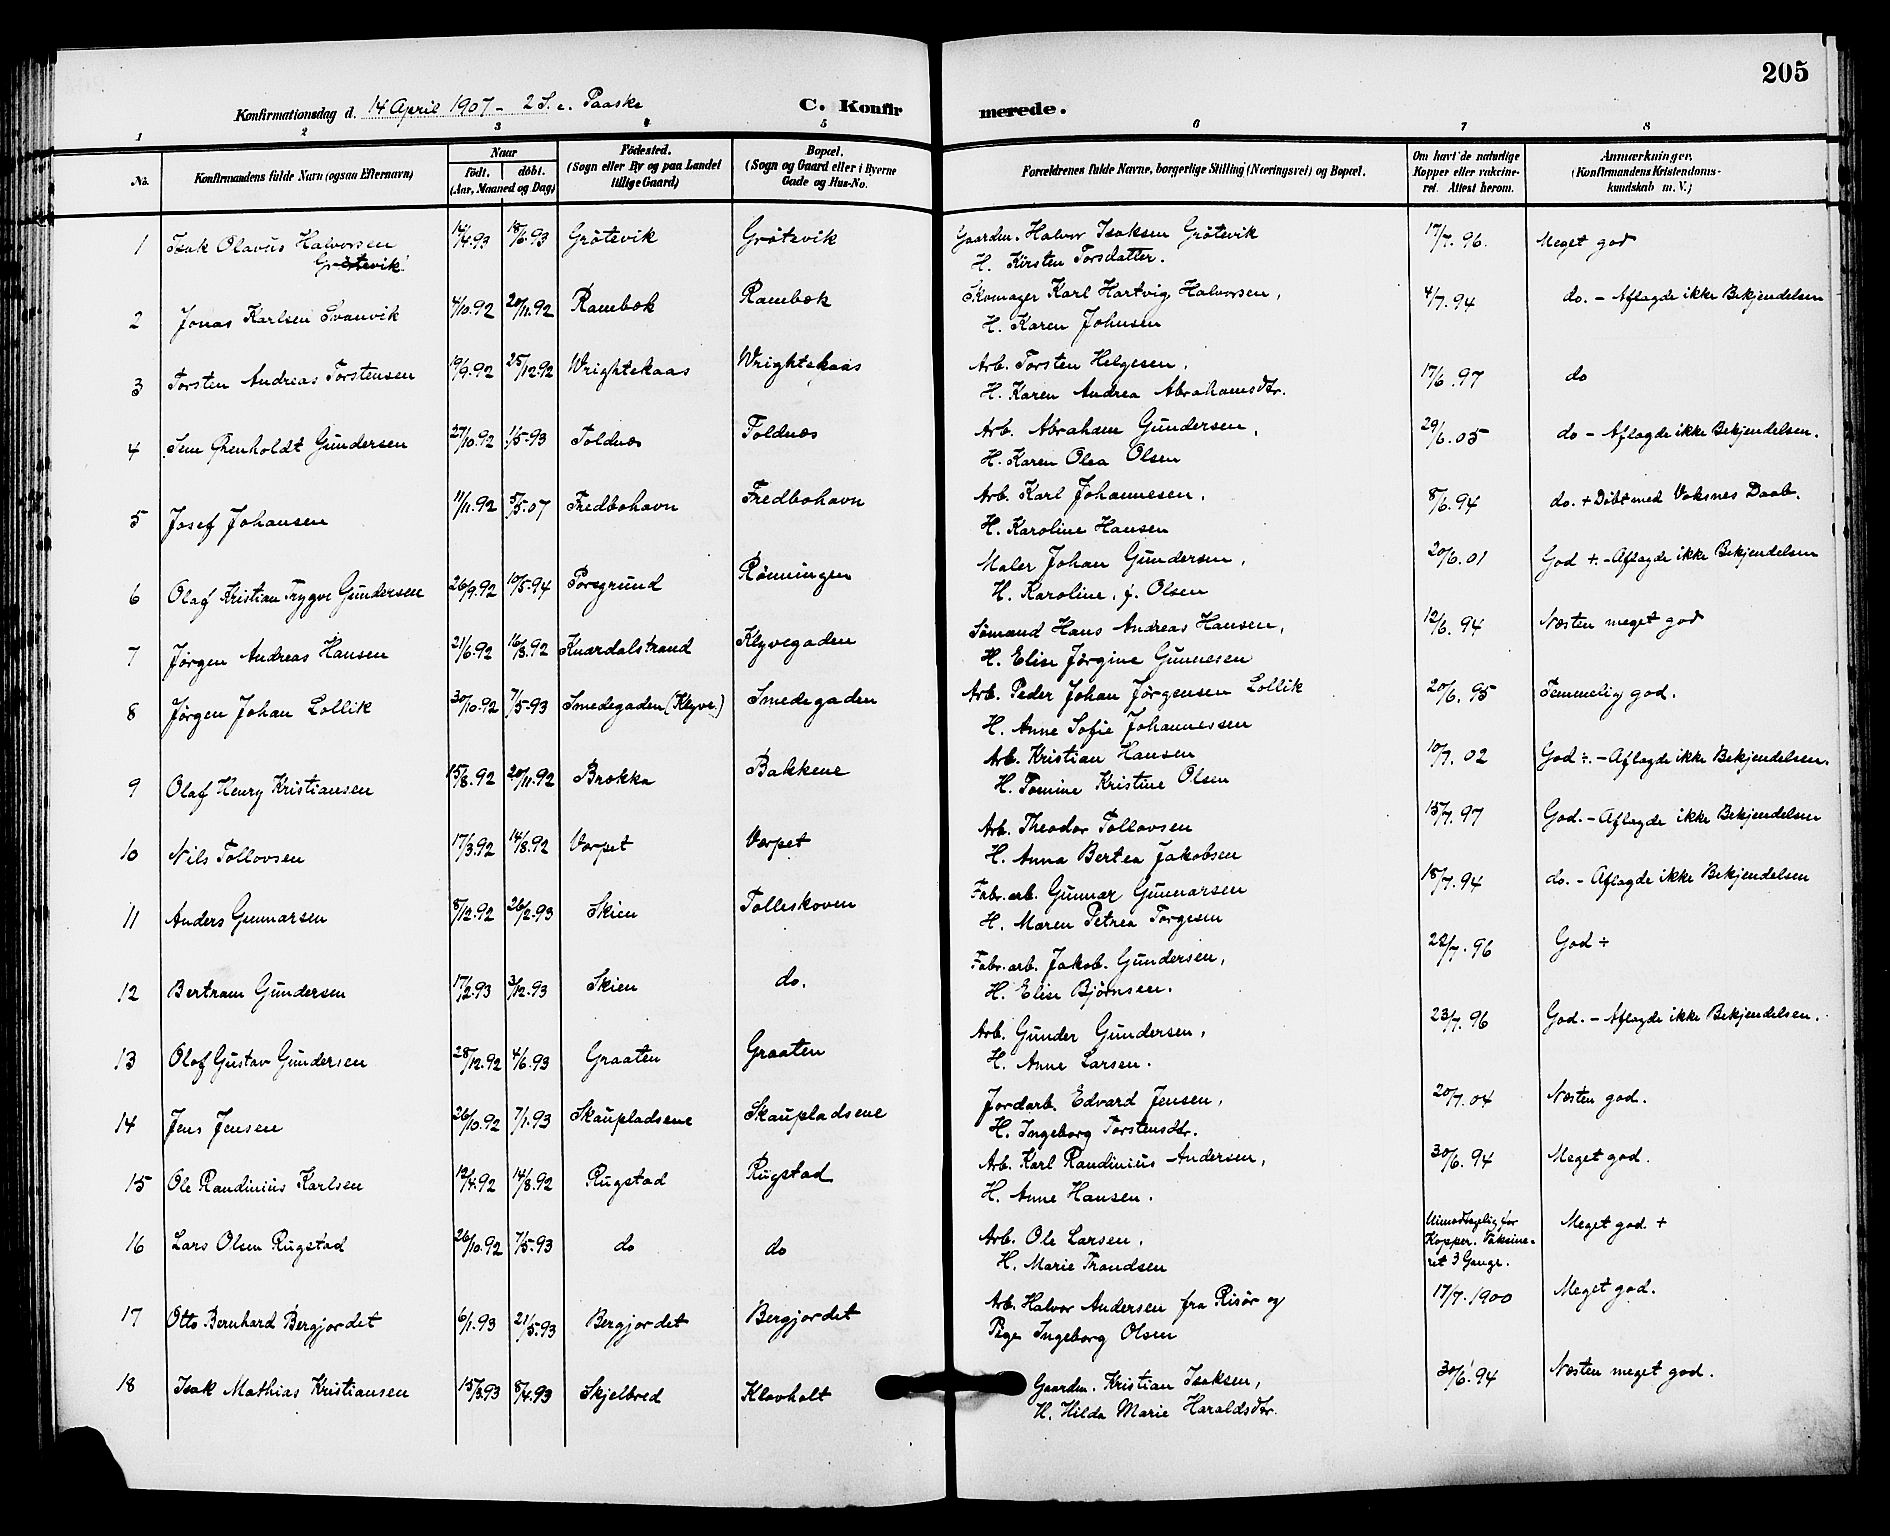 205
Konfirmationsdag d. 14 April 1907 - 2 S. e. Paaske C. Konfirmerede.
1 2 3 4 5 6 7 8
No. Konfirmandens fulde Navn (ogsaa Efternavn) Naar født. døbt. (Aar, Maaned og Dag) Fødested. (Sogn eller By og paa Landet tillige Gaard) Bopæl. (Sogn og Gaard eller i Byerne Gade og Hus-No.) Forældrenes fulde Navne, borgerlige Stilling (Næringsvei) og Bopæl. Om havt de naturlige Kopper eller vakcineret. Attest herom. Anmærkninger. (Konfirmandens Kristendomskundskab m. V.)
1 Isak Olavus Halvorsen 14/4.93 18/6.93 Grötevik Grötevik Gaardm. Halvor Isaksen Grötevik 17/7.96. Meget god
Grøtevik H. Kirsten Torsdatter.
2 Jonas Karlsen Svanvik 4/10.92 20/11.92 Rambæk Rambæk Skomager Karl Hartvig Halvorsen, 4/7.94 do. - Aflagde ikke Bekjendelsen
H. Karen Johnsen
3 Torsten Andreas Torstensen 19/9.92 25/12.92 Wrightskaas Wrightskaas Arb. Torsten Helgesen, 17/6.97 do
H. Karen Andrea Abrahamsdtr.
4 Sem Grenholdt Gundersen 27/10.92 1/5.93 Toldnæs Toldnæs Arb. Abraham Gundersen, 29/6.05 do - Aflagde ikke Bekjendelsen.
H. Karen Olea Olsen
5 Josef Johansen 11/11.92 5/5.07 Fredbohavn Fredbohavn Arb. Karl Johannesen, 8/6.94 do. + Døbt med Voksnes Daab.
H. Karoline Hansen
6 Olaf Kristian Trygve Gundersen 26/9.92 10/5.94 Porsgrund Rønningen Maler Johan Gundersen, 20/6.01 God +. - Aflagde ikke Bekjendelsen
H. Karoline, f. Olsen
7 Jørgen Andreas Hansen 21/6.92 16/8.92 Knardalstrand Klyvegaden Sømand Hans Andreas Hansen, 12/6.94 Næsten meget god
H. Elise Jørgine Gunnesen
8 Jørgen Johan Lollik 30/10.92 7/5.93 Smedegaden (Klyve.) Smedegaden Arb. Peder Johan Jørgensen Lollik 20/6.95 Temmelig god.
H. Anne Sofie Johannessen
9 Olaf Henry Kristiansen 15/8.92 20/11.92 Brækka Bakkene Arb. Kristian Hansen 10/7.02 God ÷. - Aflagde ikke Bekjendelsen.
H. Tomine Kristine Olsen
10 Nils Tollovsen 17/3.92 14/8.92 Vorpet Vorpet Arb. Theodor Tollovsen 15/7.97 God. - Aflagde ikke Bekjendelsen
H. Anna Bertea Jakobsen
11 Anders Gunnarsen 8/12.92 26/2.93 Skien Tolleskoven Fabr. arb. Gunnar Gunnarsen 18/7.94 do. - Aflagde ikke Bekjendelsen
H. Maren Petrea Torgesen
12 Bertram Gundersen 17/2.93 3/12.93 Skien do. Fabr. arb. Jakob. Gundersen, 22/7.96 God ÷
H. Elise Bjørnsen.
13 Olaf Gustav Gundersen 28/12.92 4/6.93 Graaten Graaten Arb. Gunder Gundersen, 23/7.96 God. - Aflagde ikke Bekjendelsen.
H. Anne Larsen.
14 Jens Jensen 26/10.92 7/1.93 Skaupladsene Skaupladsene Jordarb. Edvard Jensen, 20/7.04 Næsten god.
H. Ingeborg Torstensdtr.
15 Ole Randinius Karlsen 12/4.92 14/8.92 Rugstad Rugstad Arb. Karl Randinius Andersen, 30/6.94 Meget god.
H. Anne Hansen.
16 Lars Olsen Rugstad 26/10.92 7/5.93 do do Arb. Ole Larsen, Uimodtagelig for Kopper. Vaksineret 3 Gange. Meget god. +
H. Marie Trondsen
17 Otto Bernhard Bergjordet 6/1.93 21/5.93 Bergjordet Bergjordet Arb. Halvor Andersen fra Risør og 17/7.1900 Meget god.
Pige Ingeborg Olsen
18 Isak Mathias Kristiansen 15/3.93 8/4.93 Skjelbred Klovholt Gaardm. Kristian Isaksen, 30/6.94 Næsten meget god.
H. Hilda Marie Haraldsdtr.